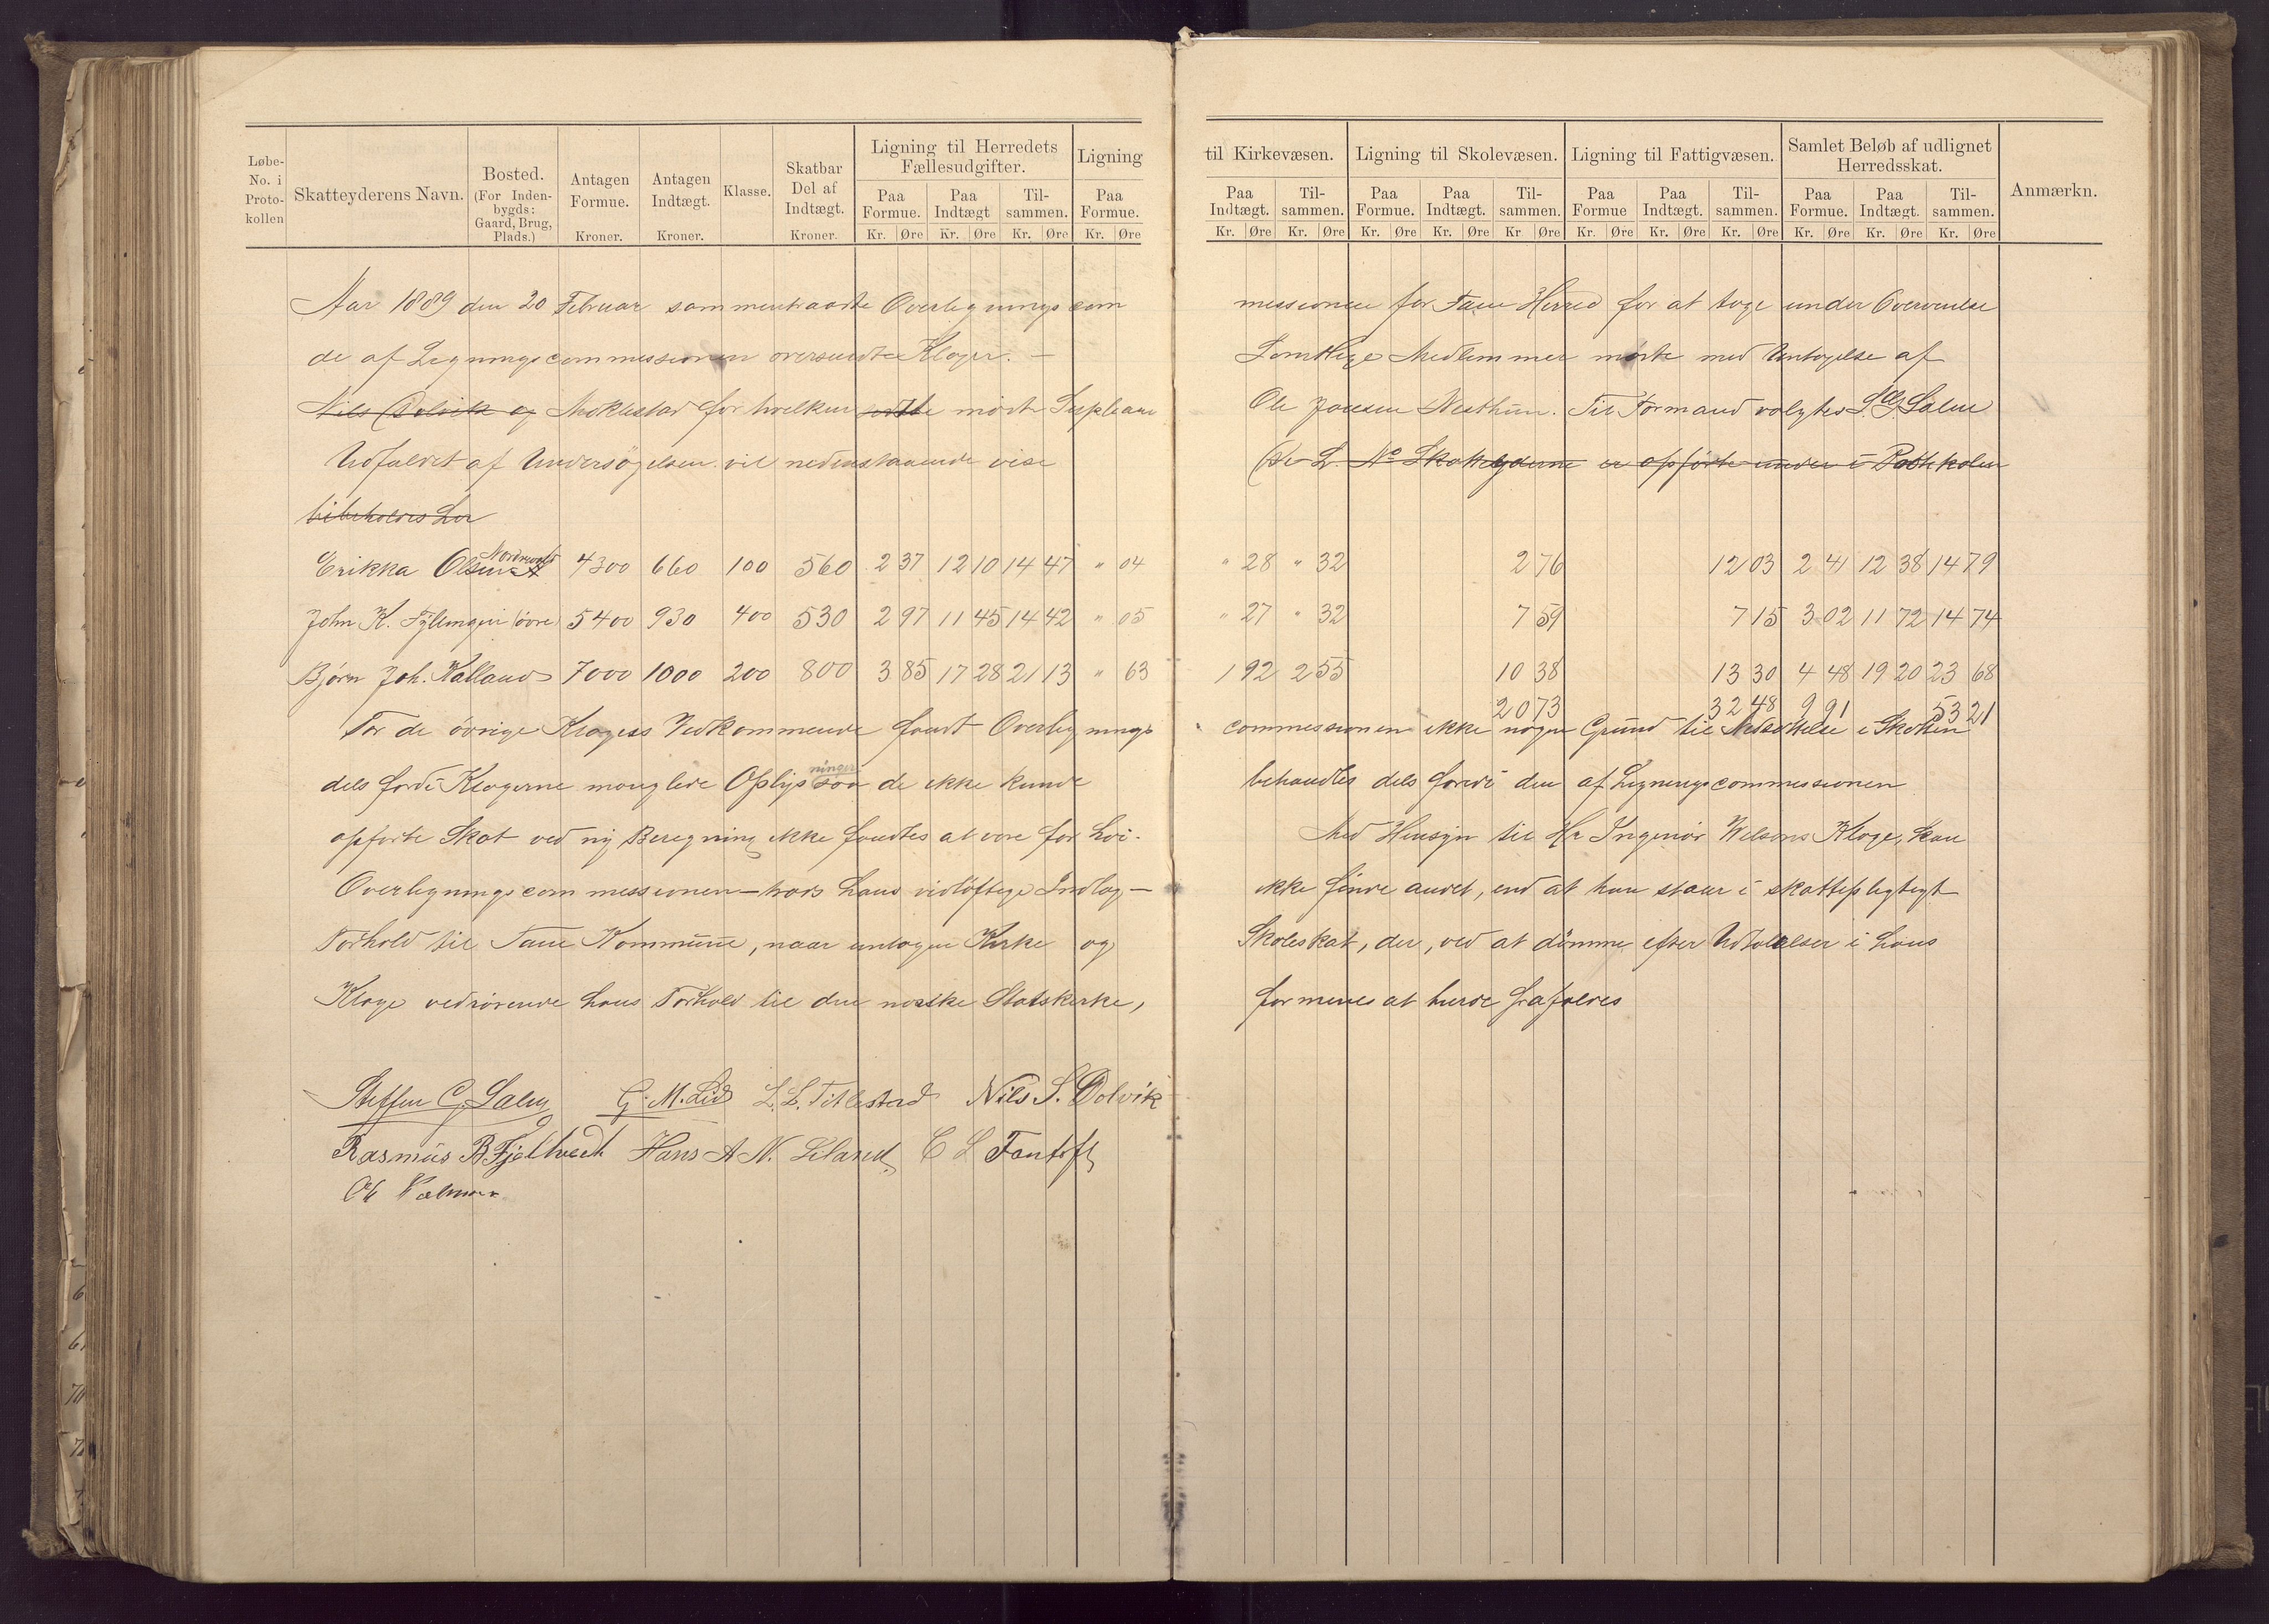 Løbe-No. i Protokollen | Skatteyderens Navn. | Bosted. (For Indenbygds: Gaard, Brug, Plads.) | Antagen Formue. Kroner. | Antagen Indtægt. Kroner. | Klasse. | Skatbar Del af Indtægt. Kroner. | Ligning til Herredets Fællesudgifter. | Ligning til Kirkevæsen. | Ligning til Skolevæsen. | Ligning til Fattigvæsen. | Samlet Beløb af udlignet Herredsskat. | Anmærkn.
Paa Formue. | Paa Indtægt | Til-sammen. | Paa Formue. | Paa Indtægt. | Til-sammen. | Paa Formue. | Paa Indtægt. | Til-sammen. | Paa Formue | Paa Indtægt. | Til-sammen. | Paa Formue. | Paa Indtægt. | Til-sammen.
Kr. Øre | Kr. Øre | Kr. Øre | Kr. Øre | Kr. Øre | Kr. Øre | Kr. Øre | Kr. Øre | Kr Øre | Kr. Øre | Kr. Øre | Kr. Øre | Kr. Øre | Kr. Øre | Kr. Øre
Aar 1889 den 20 Februar sammentraadte Overligningscommessionen for Fane Herred for at tage under Overveielse
de af Ligningscommessionen oversendte Klager. — Samtlige Medlemmer mødte med Untagelse af
Nils Dolvik og Mæklestad for hvilken mødte Supleant Ole Jansen Nesthun. Til Formand valgtes S. Salen
Udfaldet af Undersøgelsen vil nedenstaaende vise (De L. No Skatteyderne er opførte under i Protokolen
bibeholdes her
Erikka Olsen Nordnæs 4300 660 100 560 2 37 12 10 14 47 " 04 " 28 " 32 2 76 12 03 2 41 12 38 14 79
John K. Fyllingen (øvre) 5400 930 400 530 2 97 11 45 14 42 " 05 " 27 " 32 7 59 7 15 3 02 11 72 14 74
Bjørn Joh. Kalland 7000 1000 200 800 3 85 17 28 21 13 " 63 1 92 2 55 10 38 13 30 4 48 19 20 23 68
20 73 32 48 9 91 53 21
For de øvrige Klageres Vedkommende fandt Overlignings commessionen ikke nogen Grund til Nedsættelse i Skatten
dels fordi Klagerne manglede Oplysninger saa de ikke kunde behandles dels fordi den af Ligningscommessionen
opførte Skat ved ny Beregning ikke fandtes at være for høi. Med Hensyn til Hr Ingeniør Wilsons Klage, kan
Overligningscommessionen — trods hans vidløftige Indlæg — ikke finde andet, end at han staar i skattepligtigt
Forhold til Fane Kommune, naar untagen Kirke og Skoleskat, der, ved at dømme efter Udtalelser i hans
Klage vedrørende hans Forhold til den norske Statskirke, formenes at burde frafaldes
Steffen C. Salen G. M. Lid L. L. Titlestad Nils S. Dolvik
Rasmus B. Fjeltvedt Hans A N. Liland C L Fantoft